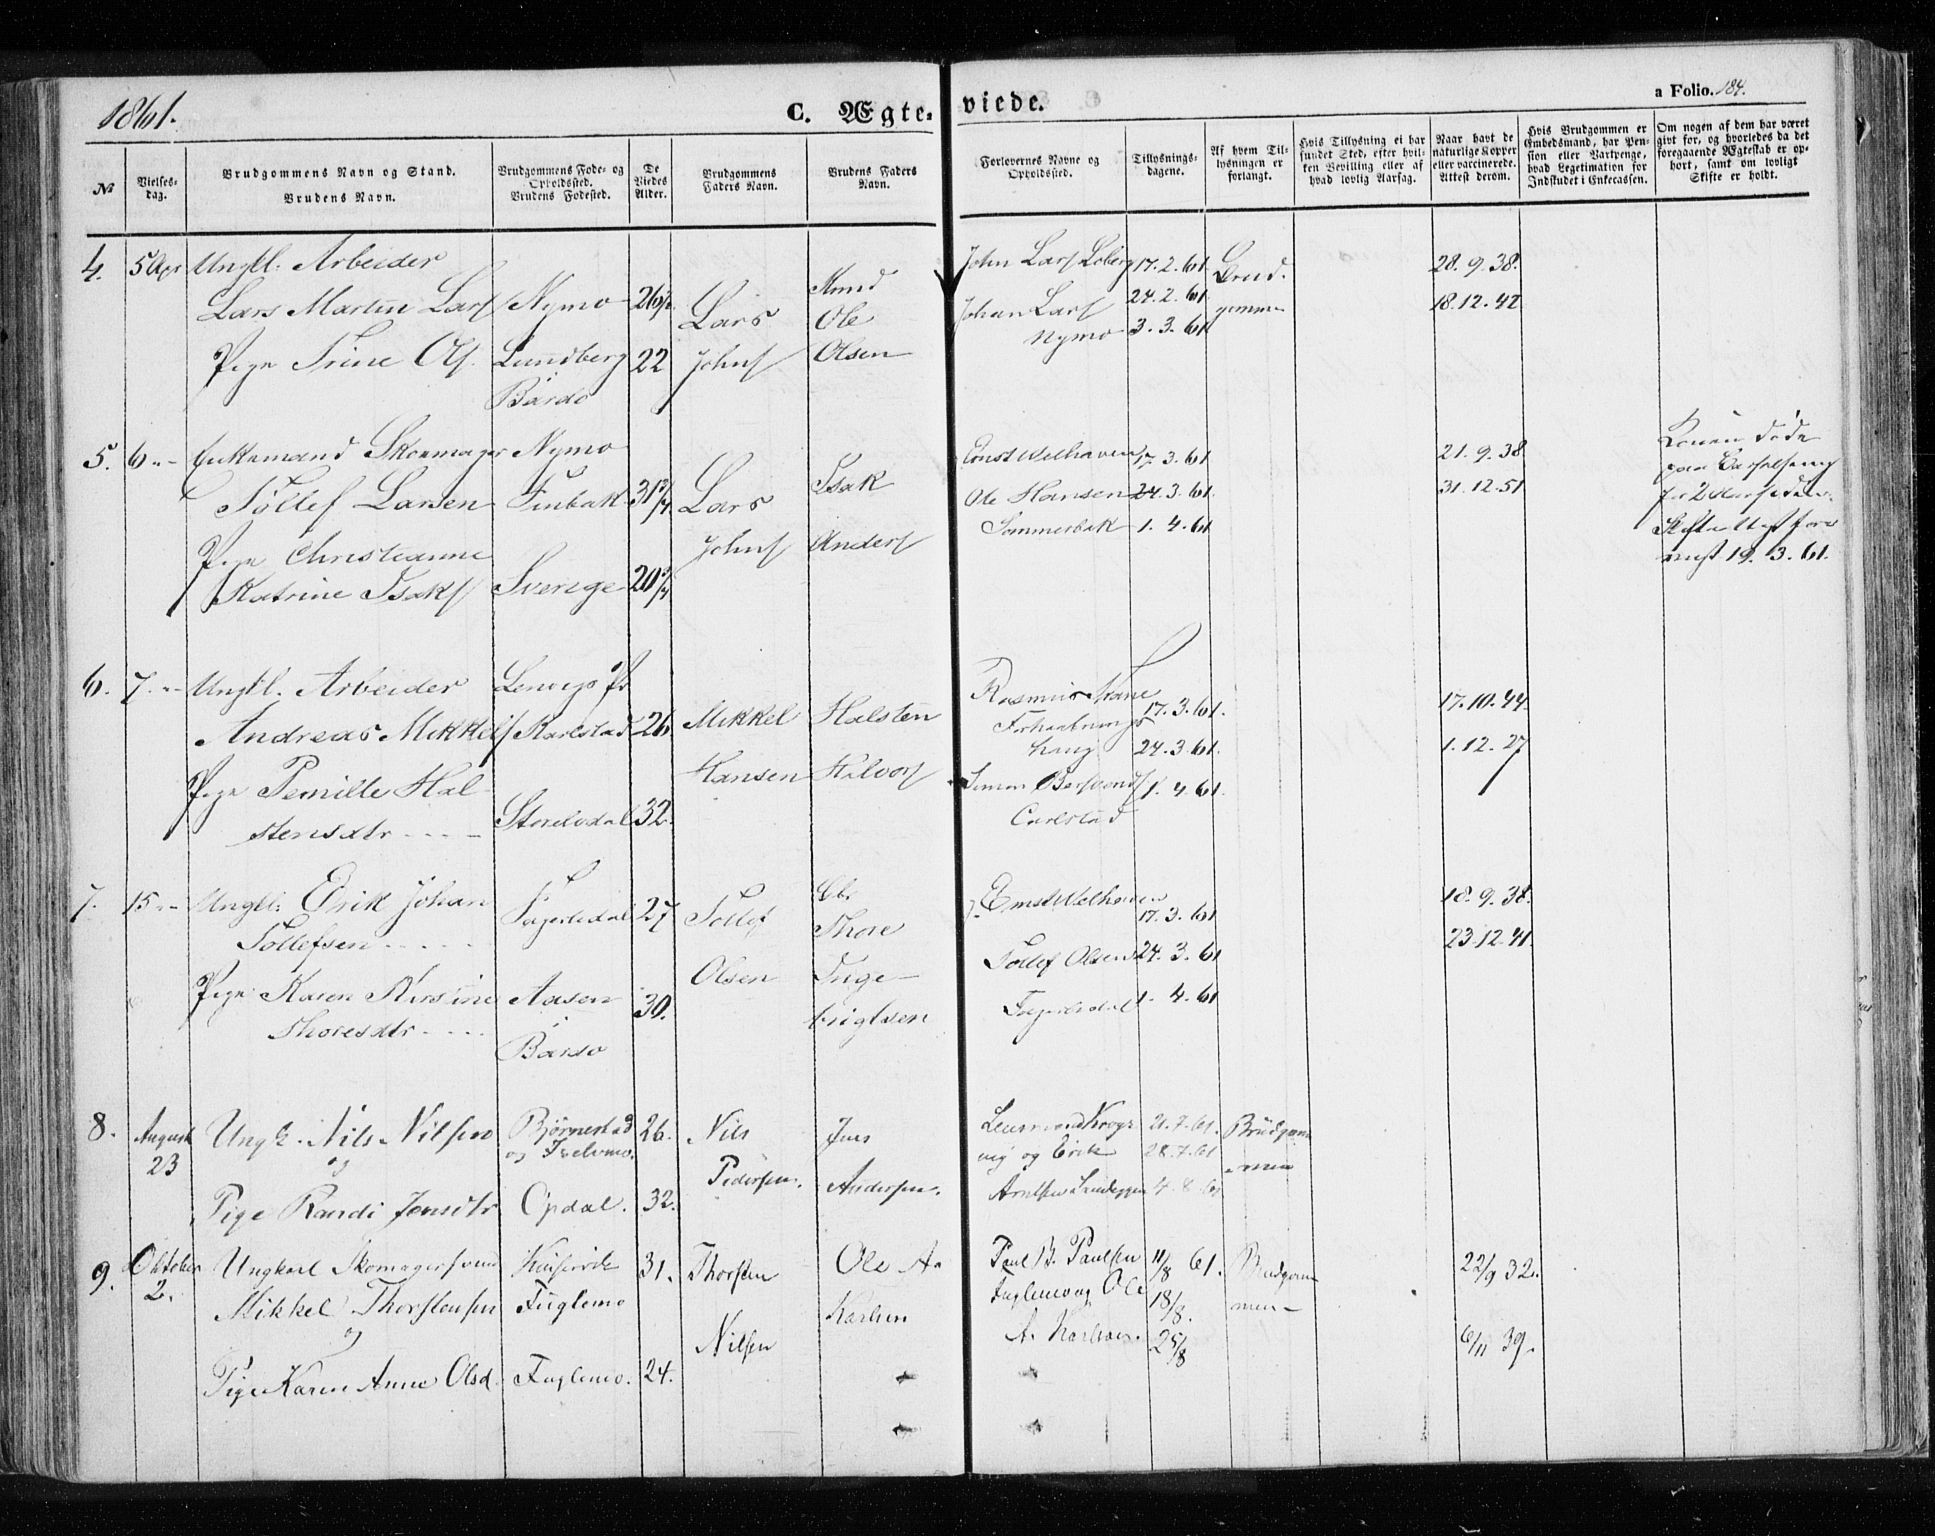 1861.
C. Ægte-
viede.
a Folio. 184.
No
Vielses-
dag.
Brudgommens Navn og Stand.
Brudens Navn.
Brudgommens Føde- og
Opholdssted.
Brudens Fødested.
De
Viedes
Alder.
Brudgommens
Faders Navn.
Brudens Faders
Navn.
Forlovernes Navne og
Opholdssted.
Tillysnings-
dagene.
Af hvem Til-
lysningen er
forlangt.
Hvis Tillysning ei har
fundet Sted, efter hvil-
ken Bevilling eller af
hvad lovlig Aarsag.
Naar havt de
naturlige Kopper
eller vaccinerede.
Attest derom.
Hvis Brudgommen er
Embedsmand, har Pen-
sion eller Vartpenge,
hvad Legetimation for
Indskudet i Enkecassen.
Om nogen af dem har været
givt før, og hvorledes da det
foregaaende Ægteskab er op-
hørt, samt om lovligt
Skifte er holdt.
4.
5 Apr
Ungkl. Arbeider
Lars Martin Lars
Pige Trine Ols.
Nymo
Lundberg
Bardo
22
Lars
Johns
Knud
Ole
Olsen
John Lars Loberg
Johan Lars
Nymo
17.2.61
24.2.61
3.3.61
Brud-
gommen
28.9.38.
18.12.42
5.
6
Enkemand Skoemager
Tøllef Larsen
Pige Christianne
Katrine Isaks
Nymo
Finbak
Sverige
31 3/4
20 3/4
Lars
Johns
Isak
Anders
Ernst Welhaven
Ole Hansen
Sommerbak
17.3.61
24.3.61
1.4.61
21.9.38
31.12.51
Konen døde
paa Barselseng
for 2 Aar siden.
19.3.61.
6.
7.
Ungkl. Arbeider
Andreas Mikkels
Pige Pernille Hal-
stensdtr
Lenvigs Pr
Karlstad
26
32.
Mikkel
Hansen
Halsten
Halvors
Rasmus
17.3.61.
24.3.61
1.4.61.
Simon
Carlstad
17.10.44.
1.12.27
7.
15
Ungkl. Erik Johan
Tollefsen
Pige Karen Kirstine
Thoresdtr
Fagerlidal
Aasen
i
Bardo
27
30.
Tollef
Olsen
Thore
Inge-
brigtsen
Ernst Welhaven
Tollef Olsen
Fagerlidal
17.3.61
24.3.61
1.4.61
18.9.38.
23.12.41.
8.
August
23
Ungk. Nils Nilsen
og
Pige Randi Jensdtr
Bjørnestad
og
Opdal.
26.
32.
Nils
Pedersen.
Jens
Andersen.
vig og Erik
Arntsen
21.7.61.
28.7.61
4.8.61
Brudgom-
men
9.
Oktober
2.
Ungkarl Skomagersvend
Mikkel Thorstensen
og
Pige Karen Anne Olsd.
Fuglemo
Fuglemo.
31.
24.
Thorsten
Nilsen
Ole A.
Karlsen
Paul B. Paulsen
Fuglemo og Ole
A. Karlsen.
11/8 61.
18/8.
25/8
Brudgom-
men
22/9 32.
6/11 39.